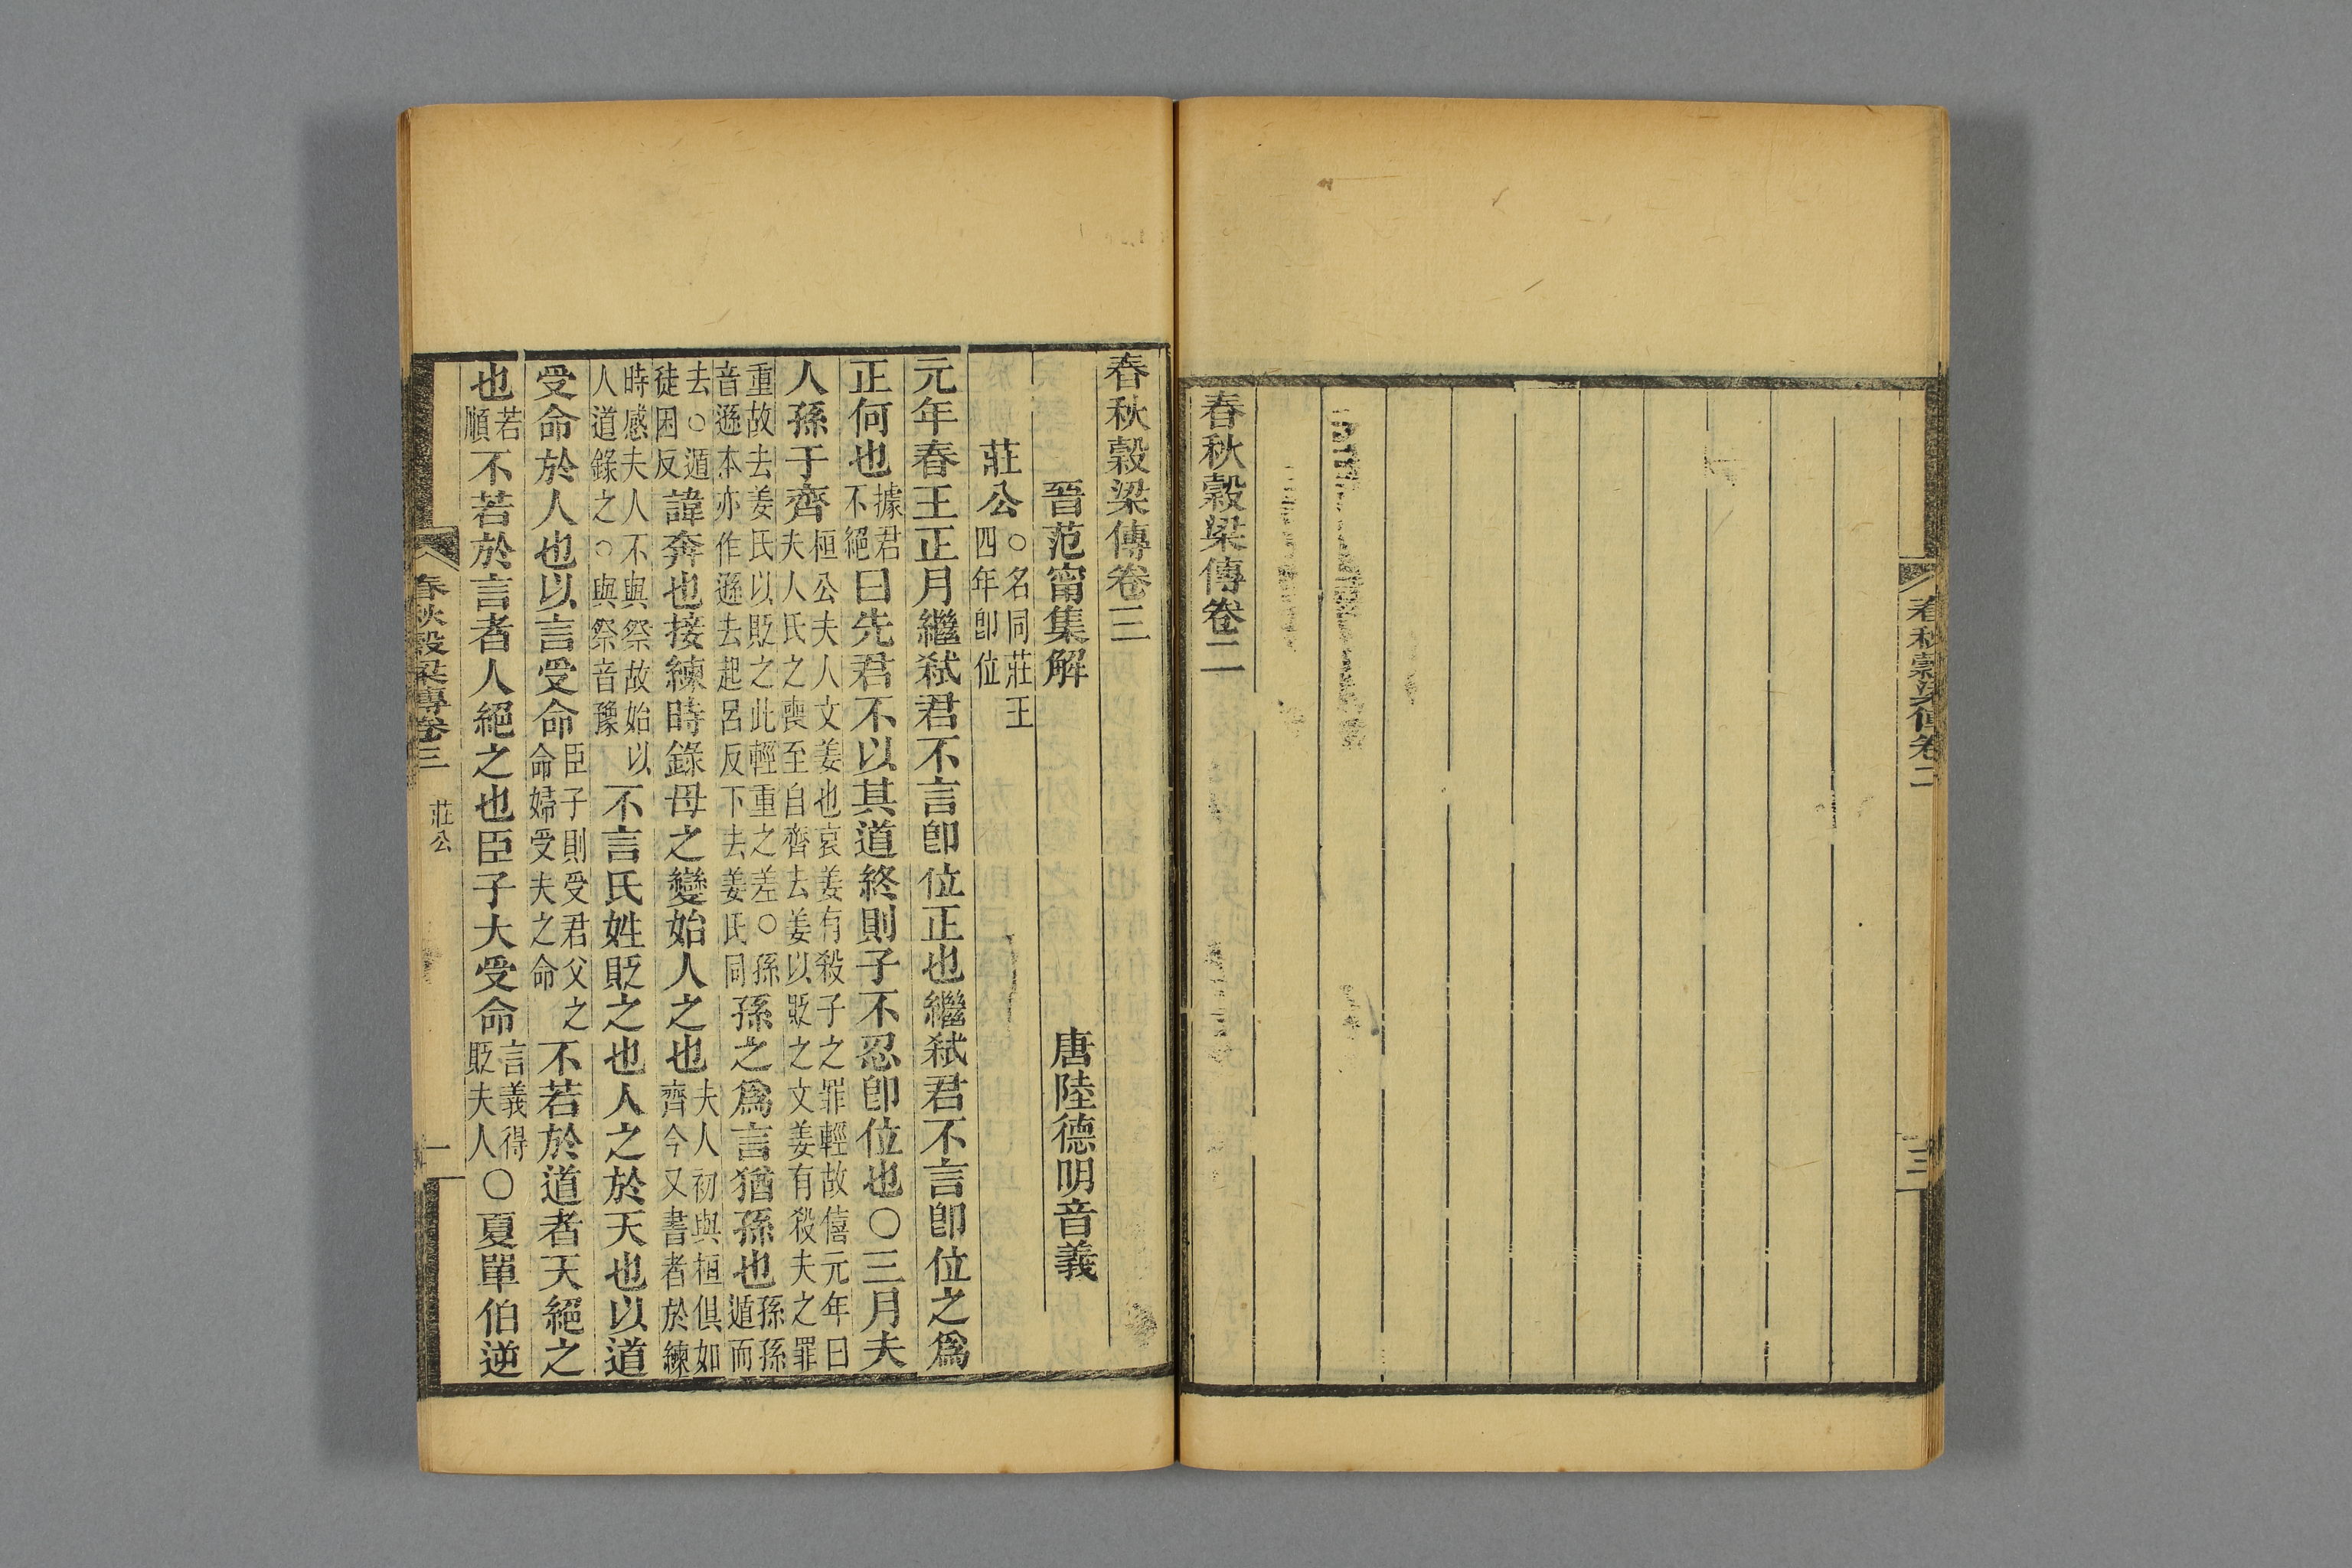 春秋穀梁傳卷二
三
春秋穀梁傳卷二
春秋穀梁傳卷三
晉范甯集解　唐陸德明音義
莊公○名同莊王四年卽位
元年春王正月繼弒君不言卽位正也繼弒君不言卽位之爲
正何也據君不絕曰先君不以其道終則子不忍卽位也○三月夫
人孫于齊桓公夫人文姜也哀姜有殺子之罪輕故僖元年曰夫人氏之喪至自齊去姜以貶之文姜有殺夫之罪
重故去姜氏以貶之此輕重之差○孫音遜本亦作遜去起呂反下去姜氏同孫之爲言猶孫也孫孫遁而
去○遁徒困反諱奔也接練時錄母之變始人之也夫人初與桓俱如齊今又書者於練
時感夫人不與祭故始以人道錄之○與祭音豫不言氏姓貶之也人之於天也以道
受命於人也以言受命臣子則受君父之命婦受夫之命不若於道者天絕之
也若順不若於言者人絕之也臣子大受命言義得貶夫人○夏單伯逆
春秋穀梁傳卷三　莊公　一